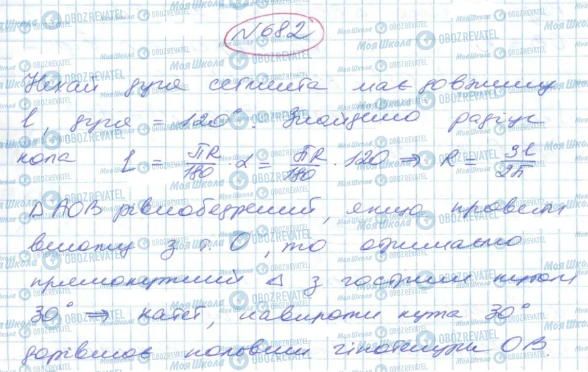 №682
Нехай дуга сегмента має довжину
l, дуга = 120°. Знайдемо радіус
кола l = πR/180 · α = πR/180 · 120 ⇒ R = 3l/2π
ΔAOB рівнобедрений, якщо провести
висоту з т. O, то отримаємо
прямокутний Δ з гострим кутом
30° ⇒ катет, навпроти кута 30°
дорівнює половині гіпотенузи OB.